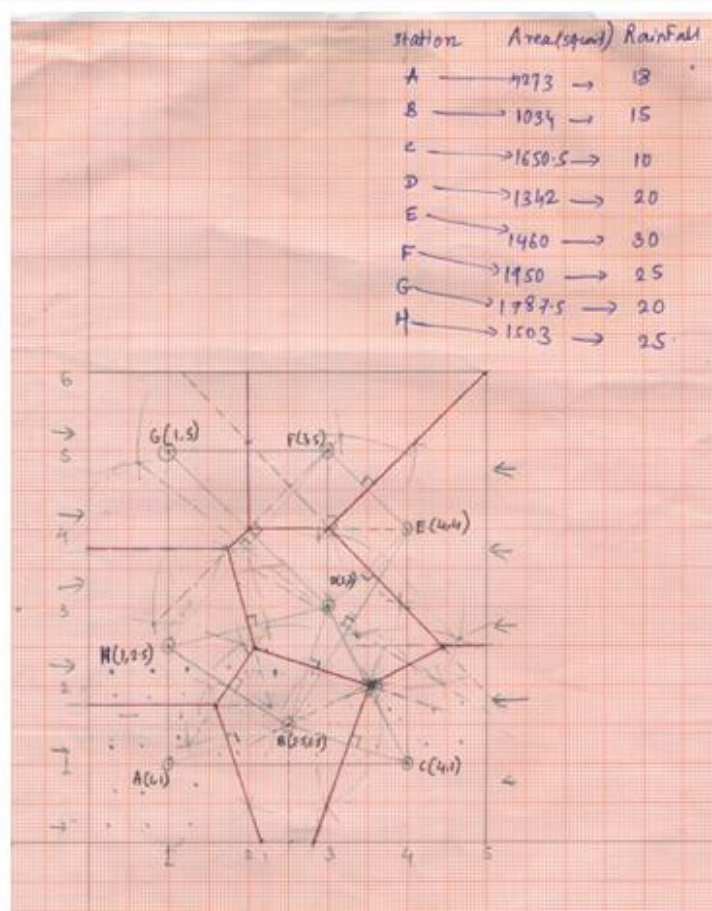 Station Area(squnit) RainFall
A → 1273 → 18
B → 1034 → 15
C → 1650.5 → 10
D → 1342 → 20
E → 1460 → 30
F → 1950 → 25
G → 1787.5 → 20
H → 1503 → 25
6
G(1,5) F(3,5)
5
4 E(4,4)
3
H(1,2.5)
2
1 A(1,1) C(4,1)
1 2 3 4 5